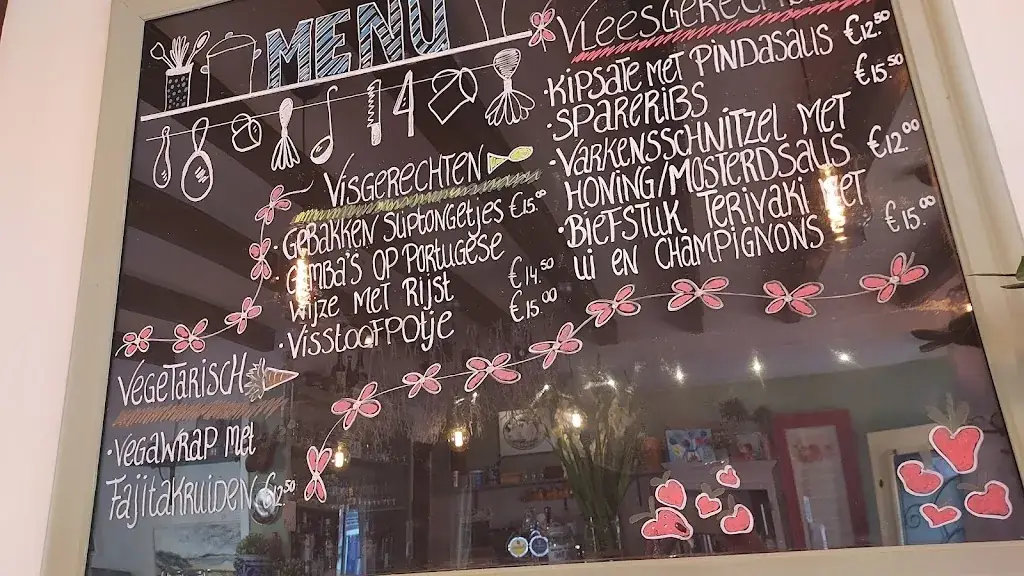 MENU
VISGERECHTEN
·GEBAKKEN SLIPTONGETJES €15.00
GAMBA'S OP PORTUGESE
WIJZE MET RIJST €14.50
·VISSTOOFPOTJE €15.00
VEGETARISCH
·VEGAWRAP MET
FAJITAKRUIDEN €12.50
VLEESGERECHTEN
·KIPSATE MET PINDASAUS €12.50
·SPARERIBS €15.50
·VARKENSSCHNITZEL MET
HONING/MOSTERDSAUS €12.00
·BIEFSTUK TERIYAKI MET
UI EN CHAMPIGNONS €15.00